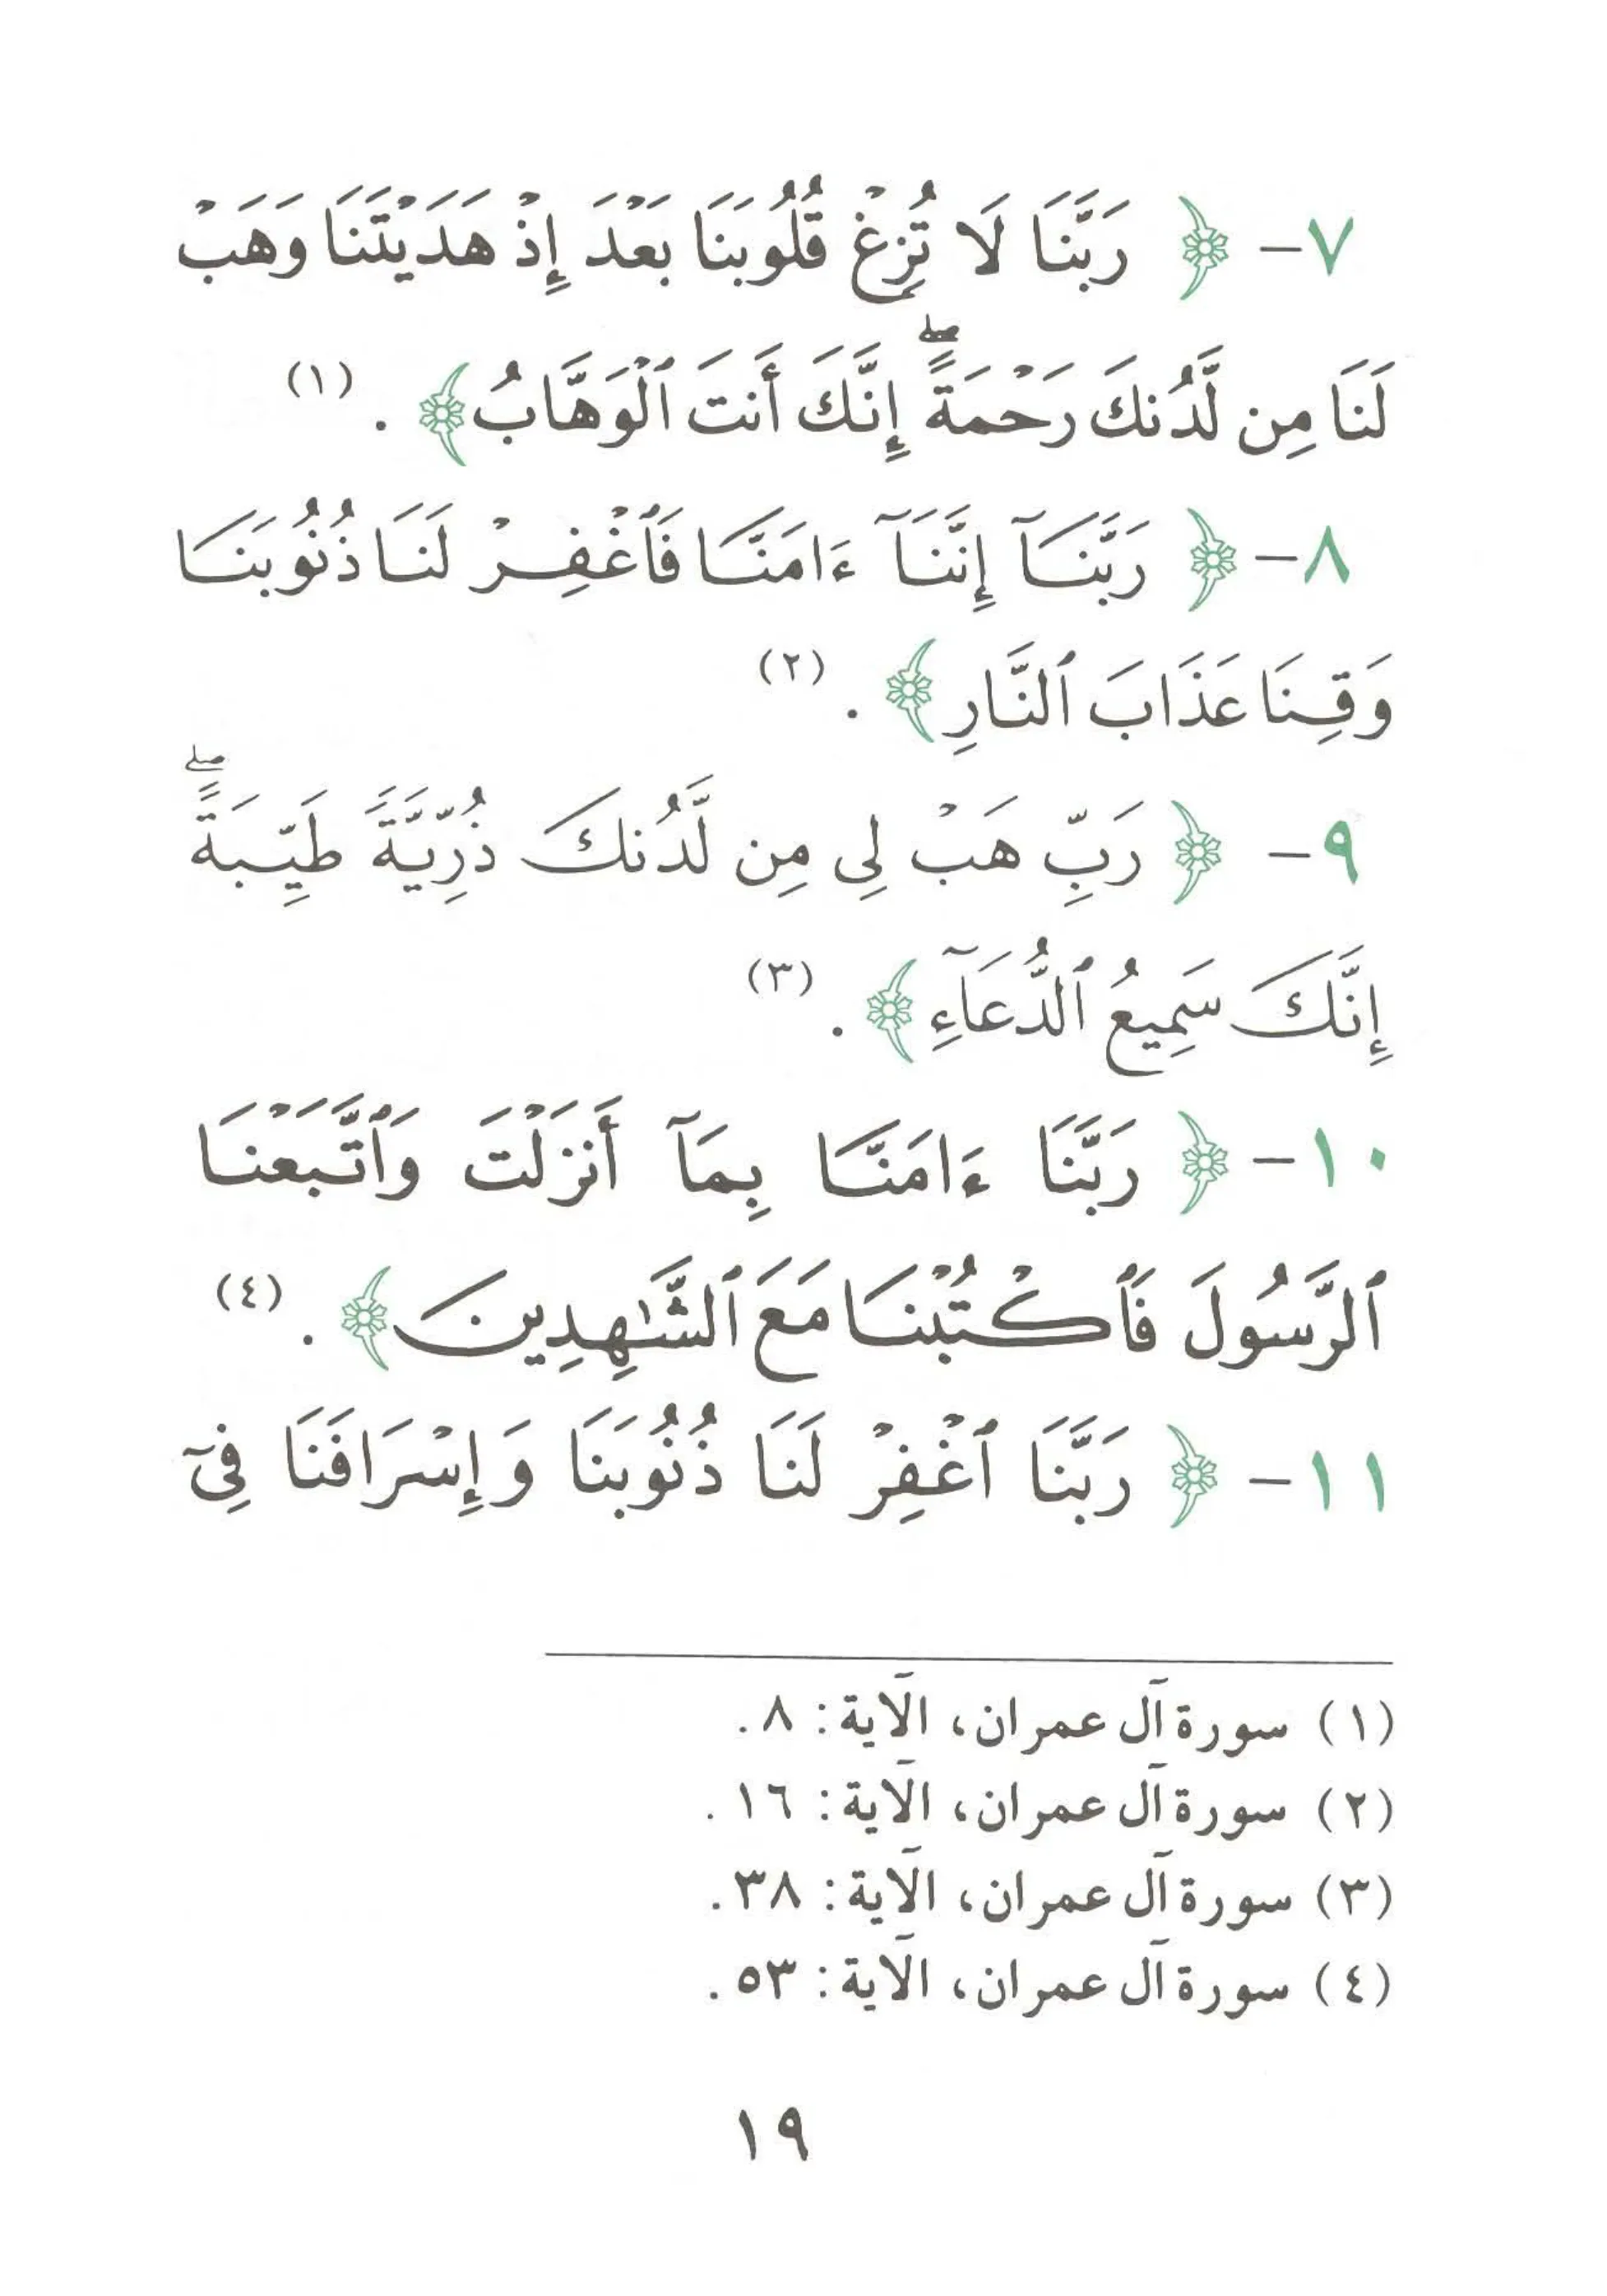 ٧- ﴿ رَبَّنَا لَا تُزِغْ قُلُوبَنَا بَعْدَ إِذْ هَدَيْتَنَا وَهَبْ
لَنَا مِن لَّدُنكَ رَحْمَةً ۖ إِنَّكَ أَنتَ ٱلْوَهَّابُ ﴾ . (١)
٨- ﴿ رَبَّنَآ إِنَّنَآ ءَامَنَّا فَٱغْفِرْ لَنَا ذُنُوبَنَا
وَقِنَا عَذَابَ ٱلنَّارِ ﴾ . (٢)
٩- ﴿ رَبِّ هَبْ لِى مِن لَّدُنكَ ذُرِّيَّةً طَيِّبَةً ۖ
إِنَّكَ سَمِيعُ ٱلدُّعَآءِ ﴾ . (٣)
١٠- ﴿ رَبَّنَا ءَامَنَّا بِمَآ أَنزَلْتَ وَٱتَّبَعْنَا
ٱلرَّسُولَ فَٱكْتُبْنَا مَعَ ٱلشَّٰهِدِينَ ﴾ . (٤)
١١- ﴿ رَبَّنَا ٱغْفِرْ لَنَا ذُنُوبَنَا وَإِسْرَافَنَا فِىٓ
(١) سورة آل عمران، الآية: ٨.
(٢) سورة آل عمران، الآية: ١٦.
(٣) سورة آل عمران، الآية: ٣٨.
(٤) سورة آل عمران، الآية: ٥٣.
١٩